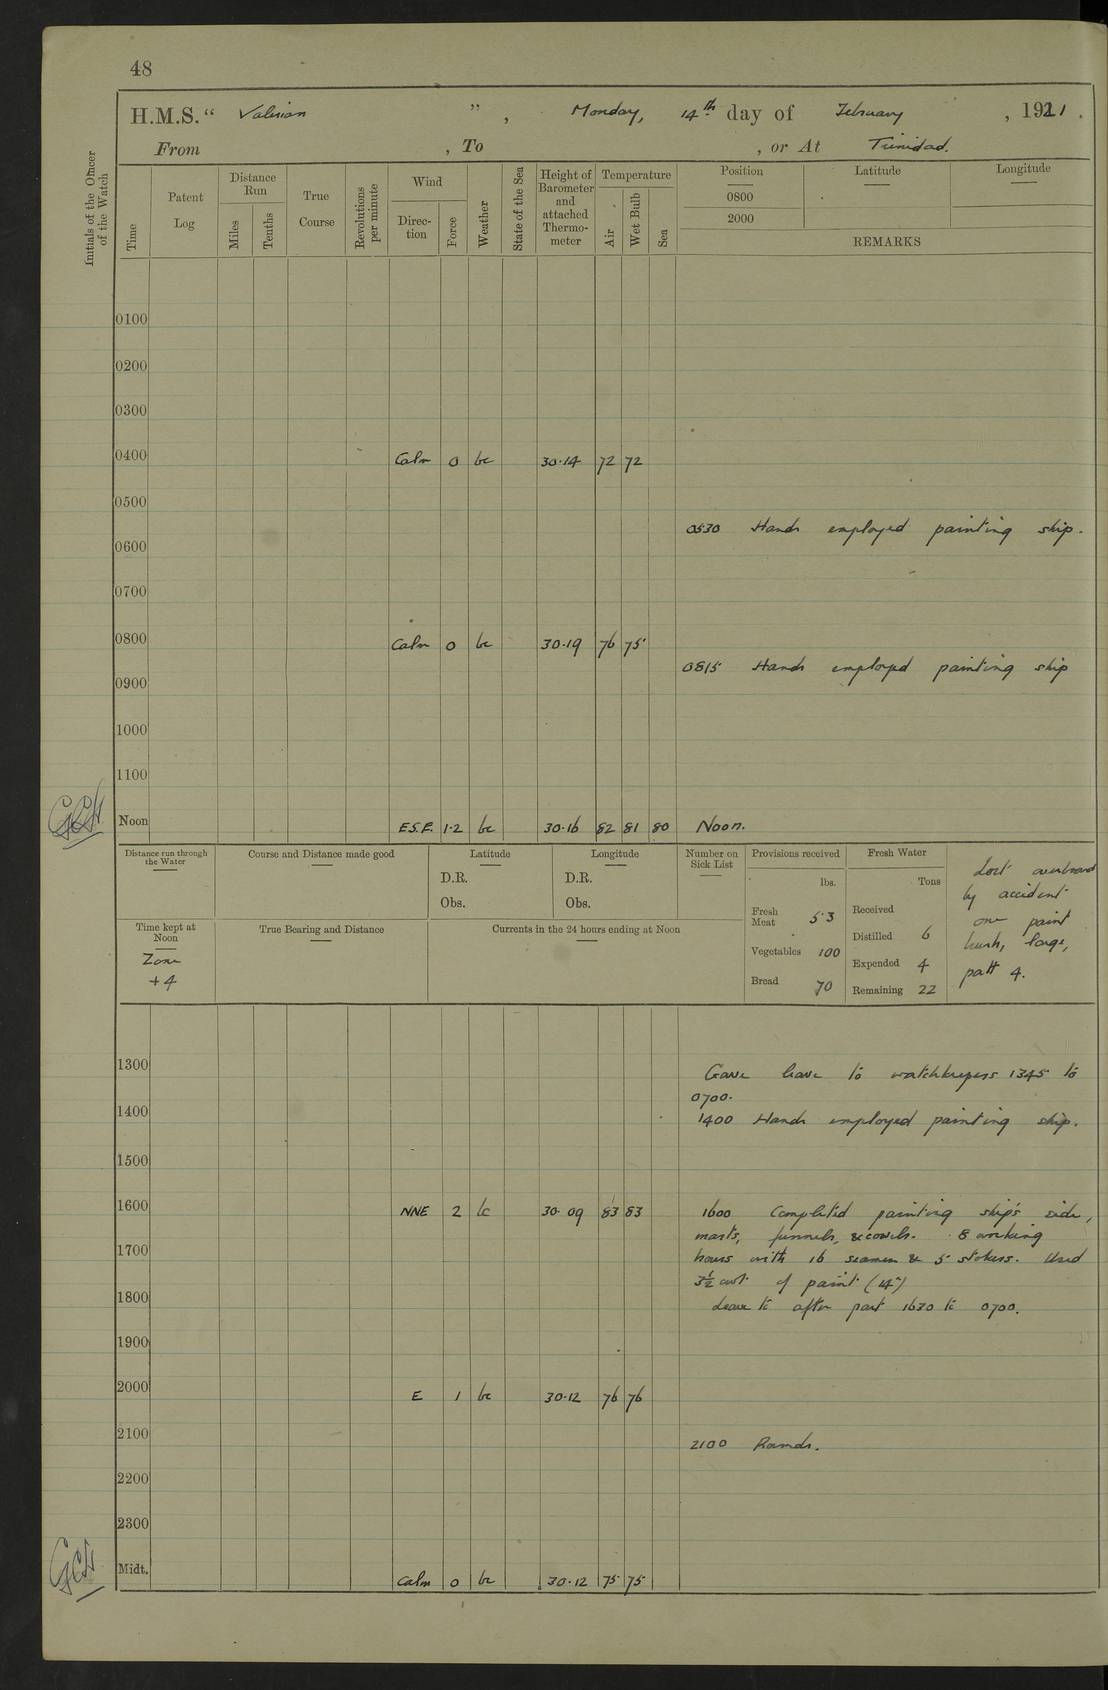 48
H.M.S. " Valerian ", Monday, 14th day of February, 1921.
From , To , or At Trinidad.
Initials of the Officer of the Watch
Time
Patent Log
Distance Run
Miles
Tenths
True Course
Revolutions per minute
Wind
Direc-tion
Force
Weather
State of the Sea
Height of Barometer and attached Thermo-meter
Temperature
Air
Wet Bulb
Sea
Position
Latitude
Longitude
0800
2000
REMARKS
0100
0200
0300
0400 Calm 0 bc 30.14 72 72
0500
0530 Hands employed painting ship.
0600
0700
0800 Calm 0 bc 30.19 76 75
0815 Hands employed painting ship
0900
1000
1100
GCH
Noon E.S.E. 1-2 bc 30.16 82 81 80 Noon.
Distance run through the Water
Course and Distance made good
Latitude
D.R.
Obs.
Longitude
D.R.
Obs.
Number on Sick List
Provisions received
lbs.
Fresh Meat 53
Vegetables 100
Bread 70
Fresh Water
Tons
Received
Distilled 6
Expended 4
Remaining 22
Lost overboard
by accident
one paint
brush, large,
patt 4.
Time kept at Noon
Zone
+4
True Bearing and Distance
Currents in the 24 hours ending at Noon
1300
Gave leave to watchkeepers 1345 to
0700.
1400 Hands employed painting ship.
1500
1600 NNE 2 bc 30.09 83 83 1600 Completed painting ship's side,
masts, funnels, & cowls. 8 working
1700
hours with 16 seamen & 5 stokers. Used
3½ cwt of paint
1800
Leave to after part 1630 to 0700.
1900
2000 E 1 bc 30.12 76 76
2100 Rounds.
2200
2300
GCH
Midt. Calm 0 bc 30.12 75 75